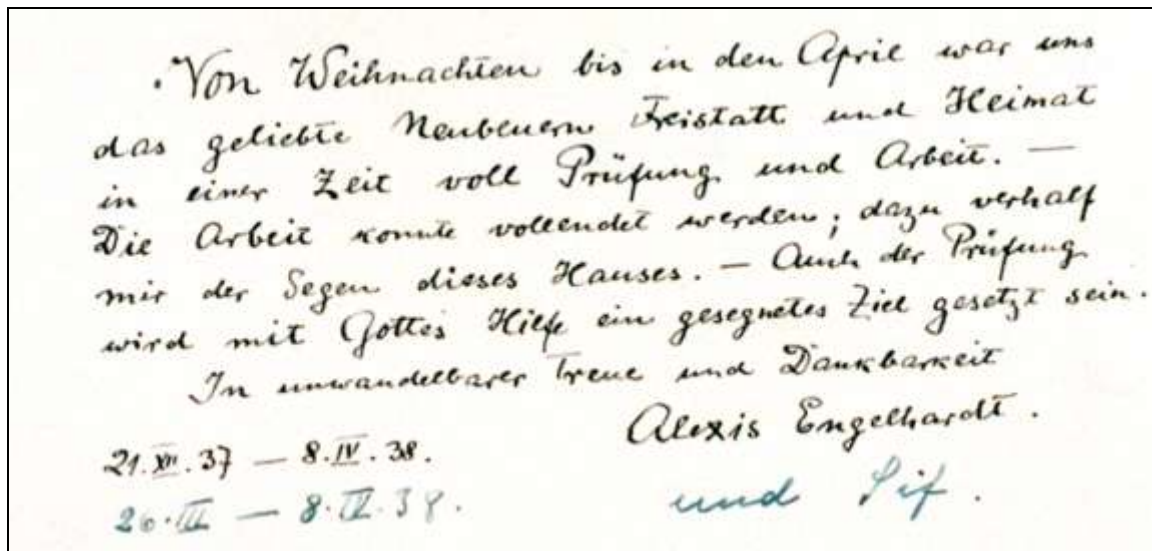 Von Weihnachten bis in den April war uns
das geliebte Neubeuern Freistatt und Heimat
in einer Zeit voll Prüfung und Arbeit. —
Die Arbeit konnte vollendet werden; dazu verhalf
mir der Segen dieses Hauses. — Auch der Prüfung
wird mit Gottes Hilfe ein gesegnetes Ziel gesetzt sein.
In unwandelbarer Treue und Dankbarkeit
Alexis Engelhardt.
21.XII.37 — 8.IV.38.
und Sif.
26.III — 8.IV.38.